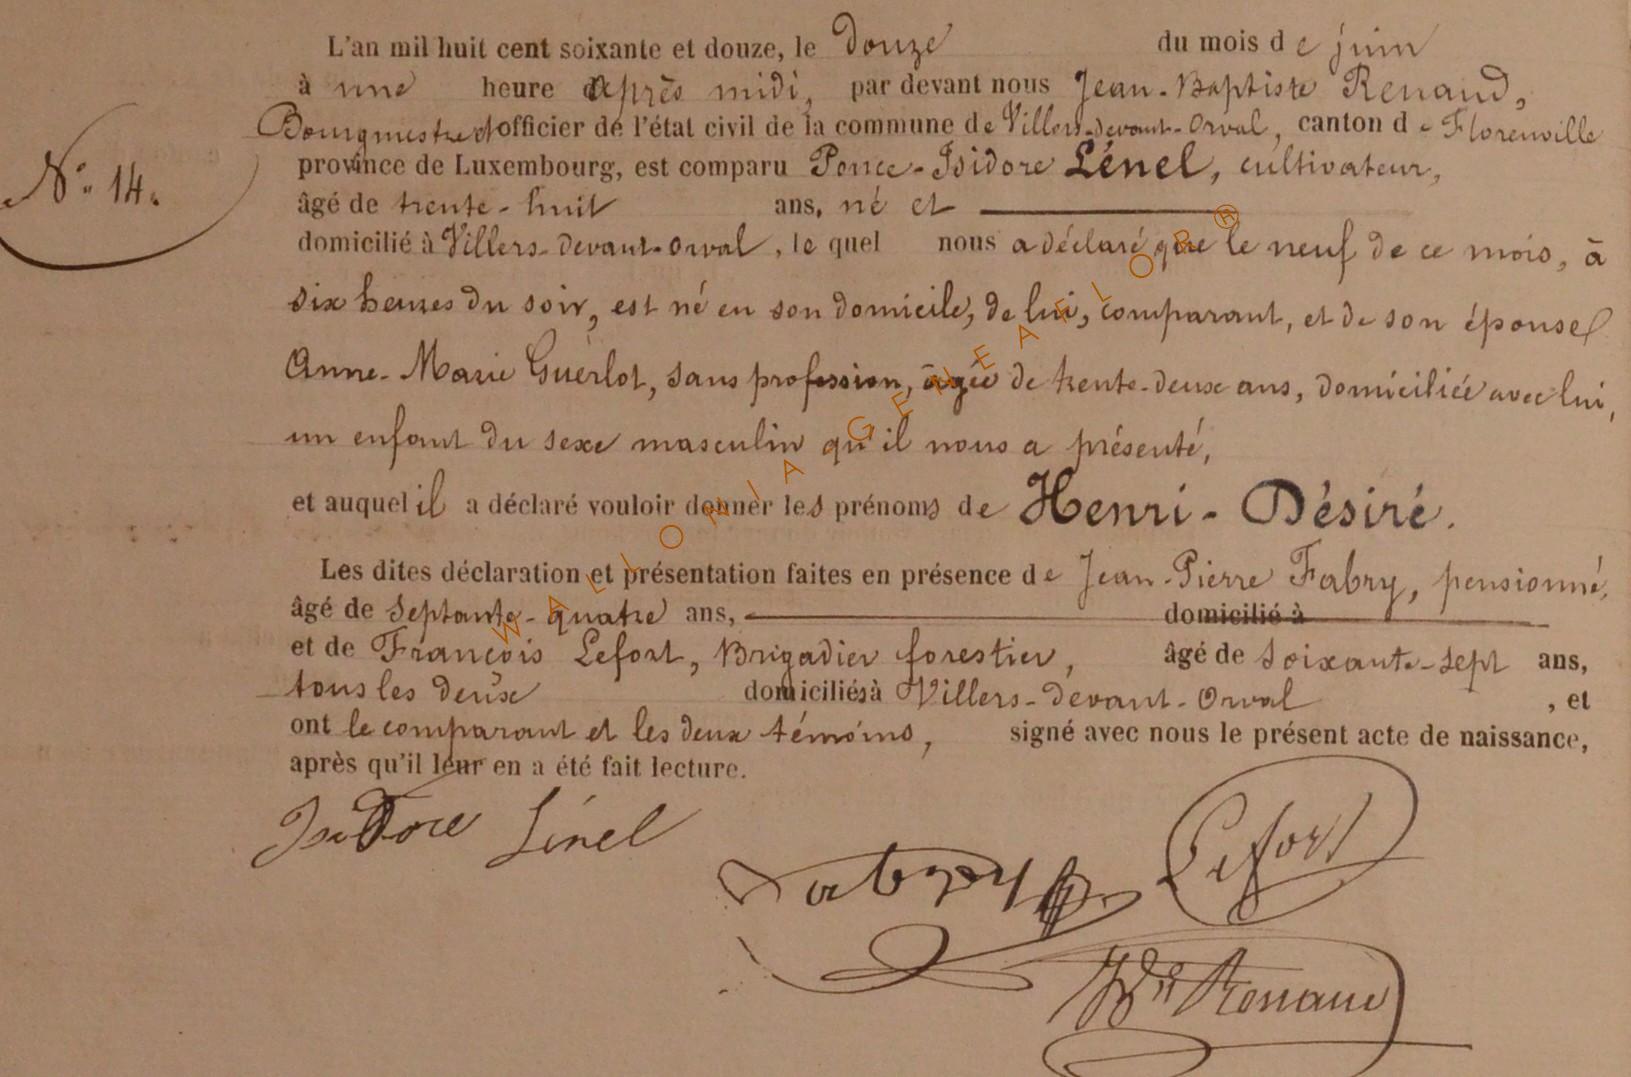 L'an mil huit cent soixante et douze, le douze du mois de juin
à une heure après midi, par devant nous Jean-Baptiste Renaud,
Bourgmestre et officier de l'état civil de la commune de Villers-devant-Orval, canton de Florenville
N° 14.
province de Luxembourg, est comparu Ponce-Isidore Lénel, cultivateur,
âgé de trente-huit ans, né et
domicilié à Villers-devant-Orval, lequel nous a déclaré que le neuf de ce mois, à
six heures du soir, est né en son domicile, de lui, comparant, et de son épouse
Anne-Marie Guérlot, sans profession, âgée de trente-deux ans, domiciliée avec lui,
un enfant du sexe masculin qu'il nous a présenté,
et auquel il a déclaré vouloir donner les prénoms de Henri-Désiré.
Les dites déclaration et présentation faites en présence de Jean-Pierre Fabry, pensionné,
âgé de septante-quatre ans, domicilié à
et de François Lefort, Brigadier forestier, âgé de soixante-sept ans,
tous les deux domiciliés à Villers-devant-Orval, et
ont le comparant et les deux témoins, signé avec nous le présent acte de naissance,
après qu'il leur en a été fait lecture.
Isidore Lénel
Fabry
Lefort
JBte Renaud
WALLONIA GENEAFLOR®